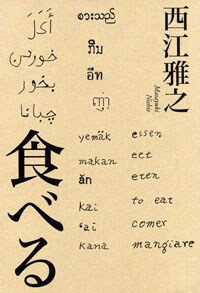 西江雅之
Masayuki Nishie
食べる
أَكَلَ
خوردن
چبانا
စားသည်
กิน
อีท
yemäk
makan
ăn
kai
'ai
kana
essen
eet
eten
to eat
comer
mangiare